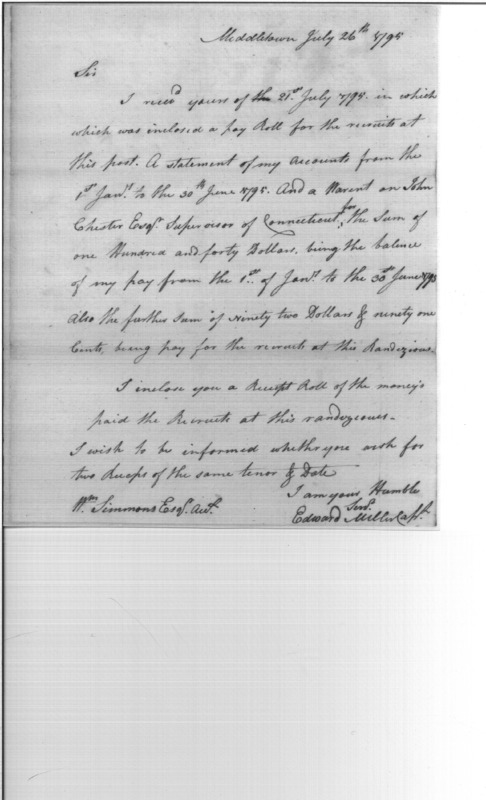 Middletown July 26th 1795
Sir
I reced yours of the 21st July 1795. in which
which was inclosed a pay Roll for the recruits at
this post. A statement of my accounts from the
1st Jany to the 30th June 1795. And a Warent on John
Chester Esqr Supervisor of Connecticut, for the Sum of
one Hundred and forty Dollars. being the balence
of my pay from the 1st of Jany to the 30th June 1795
Also the farther Sum of Ninety two Dollars & ninety one
Cents, being pay for the recruits at this Randezvous.
I inclose you a Receipt Roll of the money's
paid the Recruits at this randezvous.
I wish to be informed whethr you wish for
two Receps of the same tenor & Date
I am your Humble
Servt
Wm Simmons Esqr Acct
Edward Miller Capt